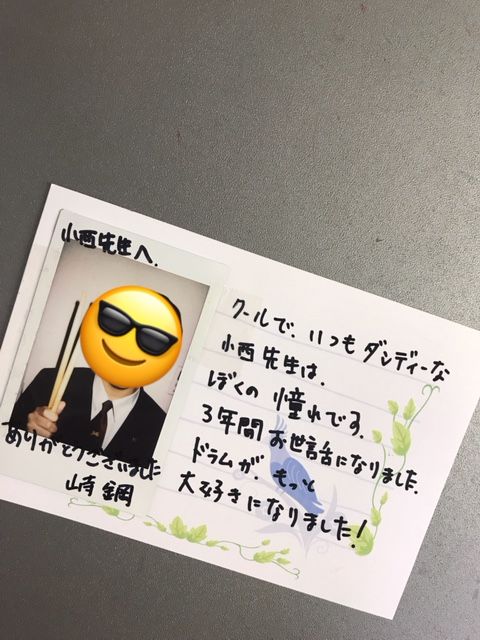 小西先生へ.
ありがとうございました
山崎 鋼
クールで、いつもダンディーな
小西先生は、
ぼくの憧れです.
3年間お世話になりました.
ドラムが、もっと
大好きになりました!